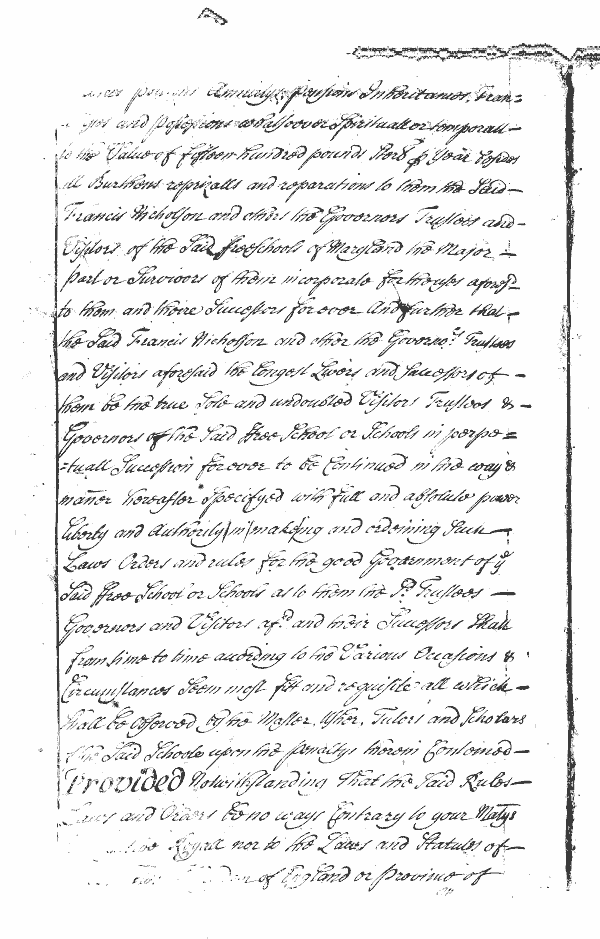 Annuityes pensions Inheritances, Fran=
and possessions whatsoever Spirituall or temporall —
to the Value of fifteen hundred pounds Sterl p Year besides
all Burthens reprizalls and reparations to them the Said —
Francis Nicholson and others the Governors Trustees and —
Visitors of the Said free Schools of Maryland the Major —
part or Survivors of them incorporate for the uses aforesd —
to them and theire Successors for ever And further that —
the Said Francis Nicholson and other the Governors Trustees
and Visitors aforesaid the longest Livers and Successors of —
them be the true Sole and undoubted Visitors Trustees & —
Governors of the Said free School or Schools in perpe =
=tuall Succession for ever to be Continued in the way &
manner hereafter Specifyed with full and absolute power
liberty and Authority in making and ordeining Such —
Laws Orders and rules for the good Government of ye
Said free School or Schools as to them the Sd Trustees —
Governors and Visitors afsd and their Successors Shall
from time to time according to the Various Occasions &
Circumstances Seem most fitt and requisite all which —
Shall be observed by the Master, Usher, Tutors and Scholars
the Said Schools upon the penaltys therein Conteined —
Provided Notwithstanding that the Said Rules —
Laws and Orders be no ways Contrary to your Matys
Royall nor to the Laws and Statutes of —
of England or Province of